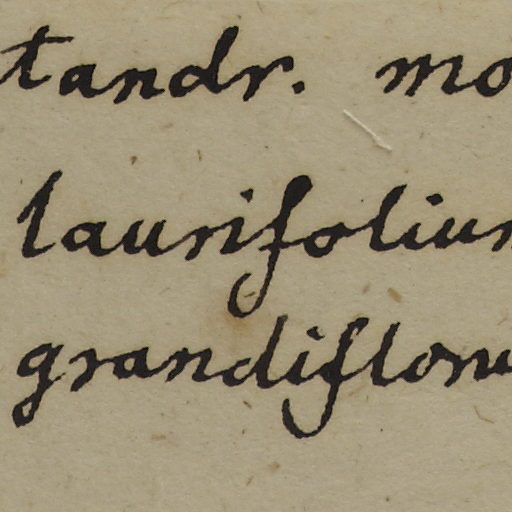 tandr. mo
laurifolium
grandifloru